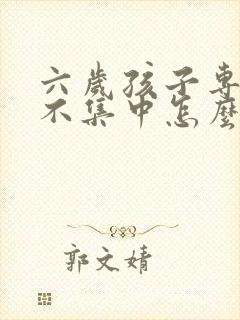 六歲孩子專
不集中怎麼
郭文婧